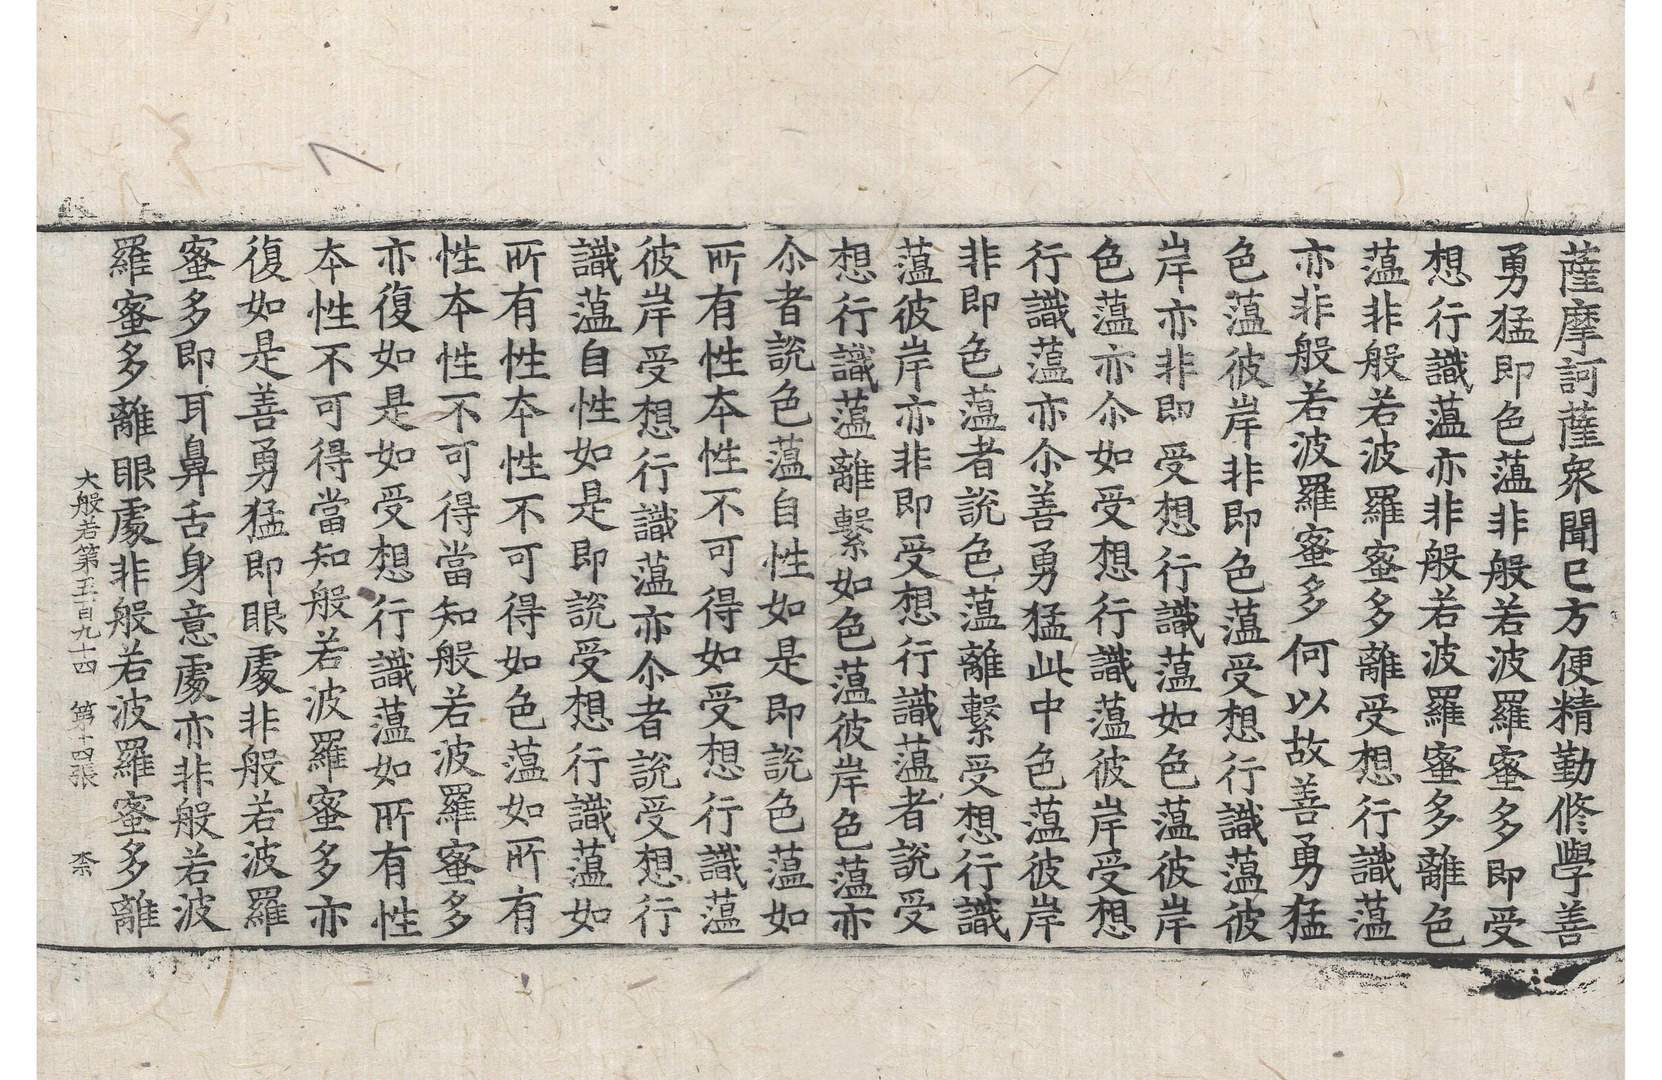 薩摩訶薩衆聞已方便精勤修學善
勇猛即色薀非般若波羅蜜多即受
想行識薀亦非般若波羅蜜多離色
薀非般若波羅蜜多離受想行識薀
亦非般若波羅蜜多何以故善勇猛
色薀彼岸非即色薀受想行識薀彼
岸亦非即受想行識薀如色薀彼岸
色薀亦尒如受想行識薀彼岸受想
行識薀亦尒善勇猛此中色薀彼岸
非即色薀者說色薀離繫受想行識
薀彼岸亦非即受想行識薀者說受
想行識薀離繫如色薀彼岸色薀亦
尒者說色薀自性如是即說色薀如
所有性本性不可得如受想行識薀
彼岸受想行識薀亦尒者說受想行
識薀自性如是即說受想行識薀如
所有性本性不可得如色薀如所有
性本性不可得當知般若波羅蜜多
亦復如是如受想行識薀如所有性
本性不可得當知般若波羅蜜多亦
復如是善勇猛即眼處非般若波羅
蜜多即耳鼻舌身意處亦非般若波
羅蜜多離眼處非般若波羅蜜多離
大般若第五百九十四 第十四張 柰